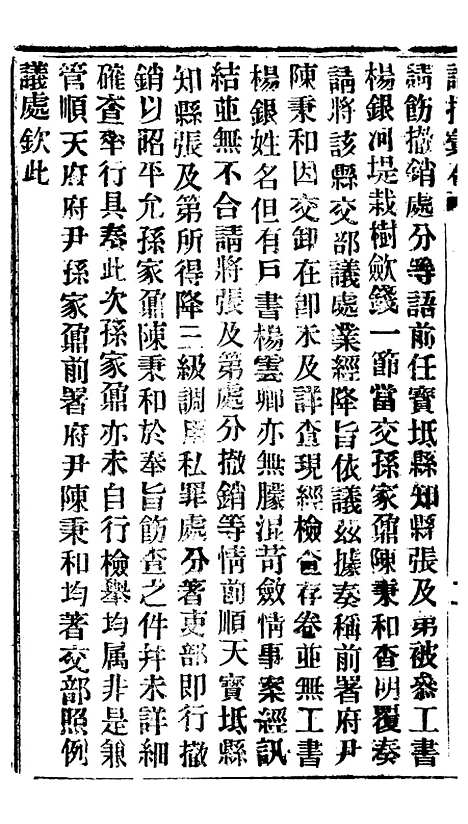 請飭撤銷處分等語前任寶坻縣知縣張及第被參工書
楊銀河堤栽樹歛錢一節當交孫家鼐陳秉和查明覆奏
請將該縣交部議處業經降旨依議茲據奏稱前署府尹
陳秉和因交卸在卽未及詳查現經檢查存卷並無工書
楊銀姓名但有戶書楊雲卿亦無朦混苛斂情事案經訊
結並無不合請將張及第處分撤銷等情前順天寶坻縣
知縣張及第所得降三級調用私罪處分著吏部即行撤
銷以昭平允孫家鼐陳秉和於奉旨飭查之件幷未詳細
確查率行具奏此次孫家鼐亦未自行檢舉均属非是兼
管順天府府尹孫家鼐前署府尹陳秉和均著交部照例
議處欽此